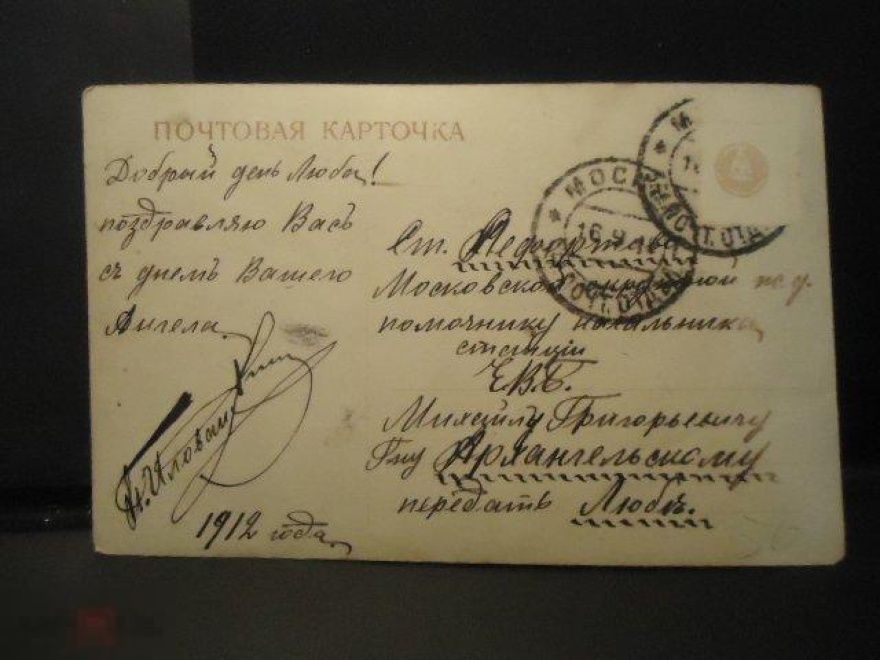 ПОЧТОВАЯ КАРТОЧКА
Добрый день Люба!
поздравляю Васъ
съ днемъ Вашего
Ангела
1912 года.
МОСК
16.9
Ст. Лефортово
Московской окружной ж. д.
помочнику начальника
станціи
Е.В.Б.
Михаилу Григорьевичу
Гну Архангельскому
передать Любѣ.